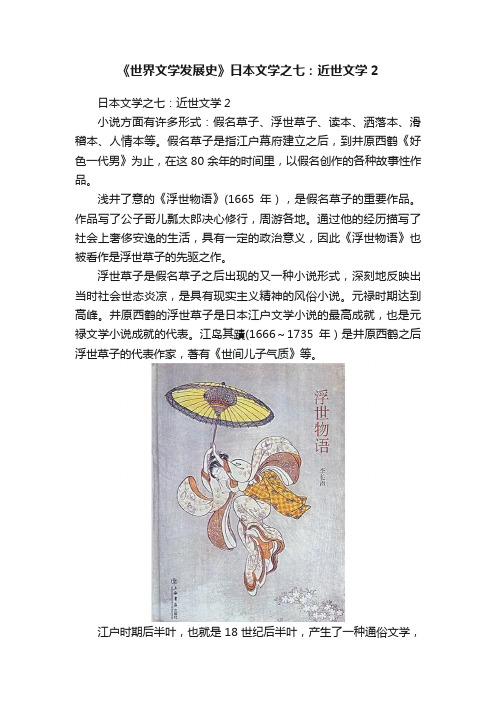 《世界文学发展史》日本文学之七：近世文学2
日本文学之七：近世文学2
小说方面有许多形式：假名草子、浮世草子、读本、洒落本、滑
稽本、人情本等。假名草子是指江户幕府建立之后，到井原西鹤《好
色一代男》为止，在这80余年的时间里，以假名创作的各种故事性作
品。
浅井了意的《浮世物语》(1665年），是假名草子的重要作品。
作品写了公子哥儿瓢太郎决心修行，周游各地。通过他的经历描写了
社会上奢侈安逸的生活，具有一定的政治意义，因此《浮世物语》也
被看作是浮世草子的先驱之作。
浮世草子是假名草子之后出现的又一种小说形式，深刻地反映出
当时社会世态炎凉，是具有现实主义精神的风俗小说。元禄时期达到
高峰。井原西鹤的浮世草子是日本江户文学小说的最高成就，也是元
禄文学小说成就的代表。江岛其蹟(1666～1735年）是井原西鹤之后
浮世草子的代表作家，著有《世间儿子气质》等。
浮世物语
李长声
上海书店出版社
江户时期后半叶，也就是18世纪后半叶，产生了一种通俗文学，